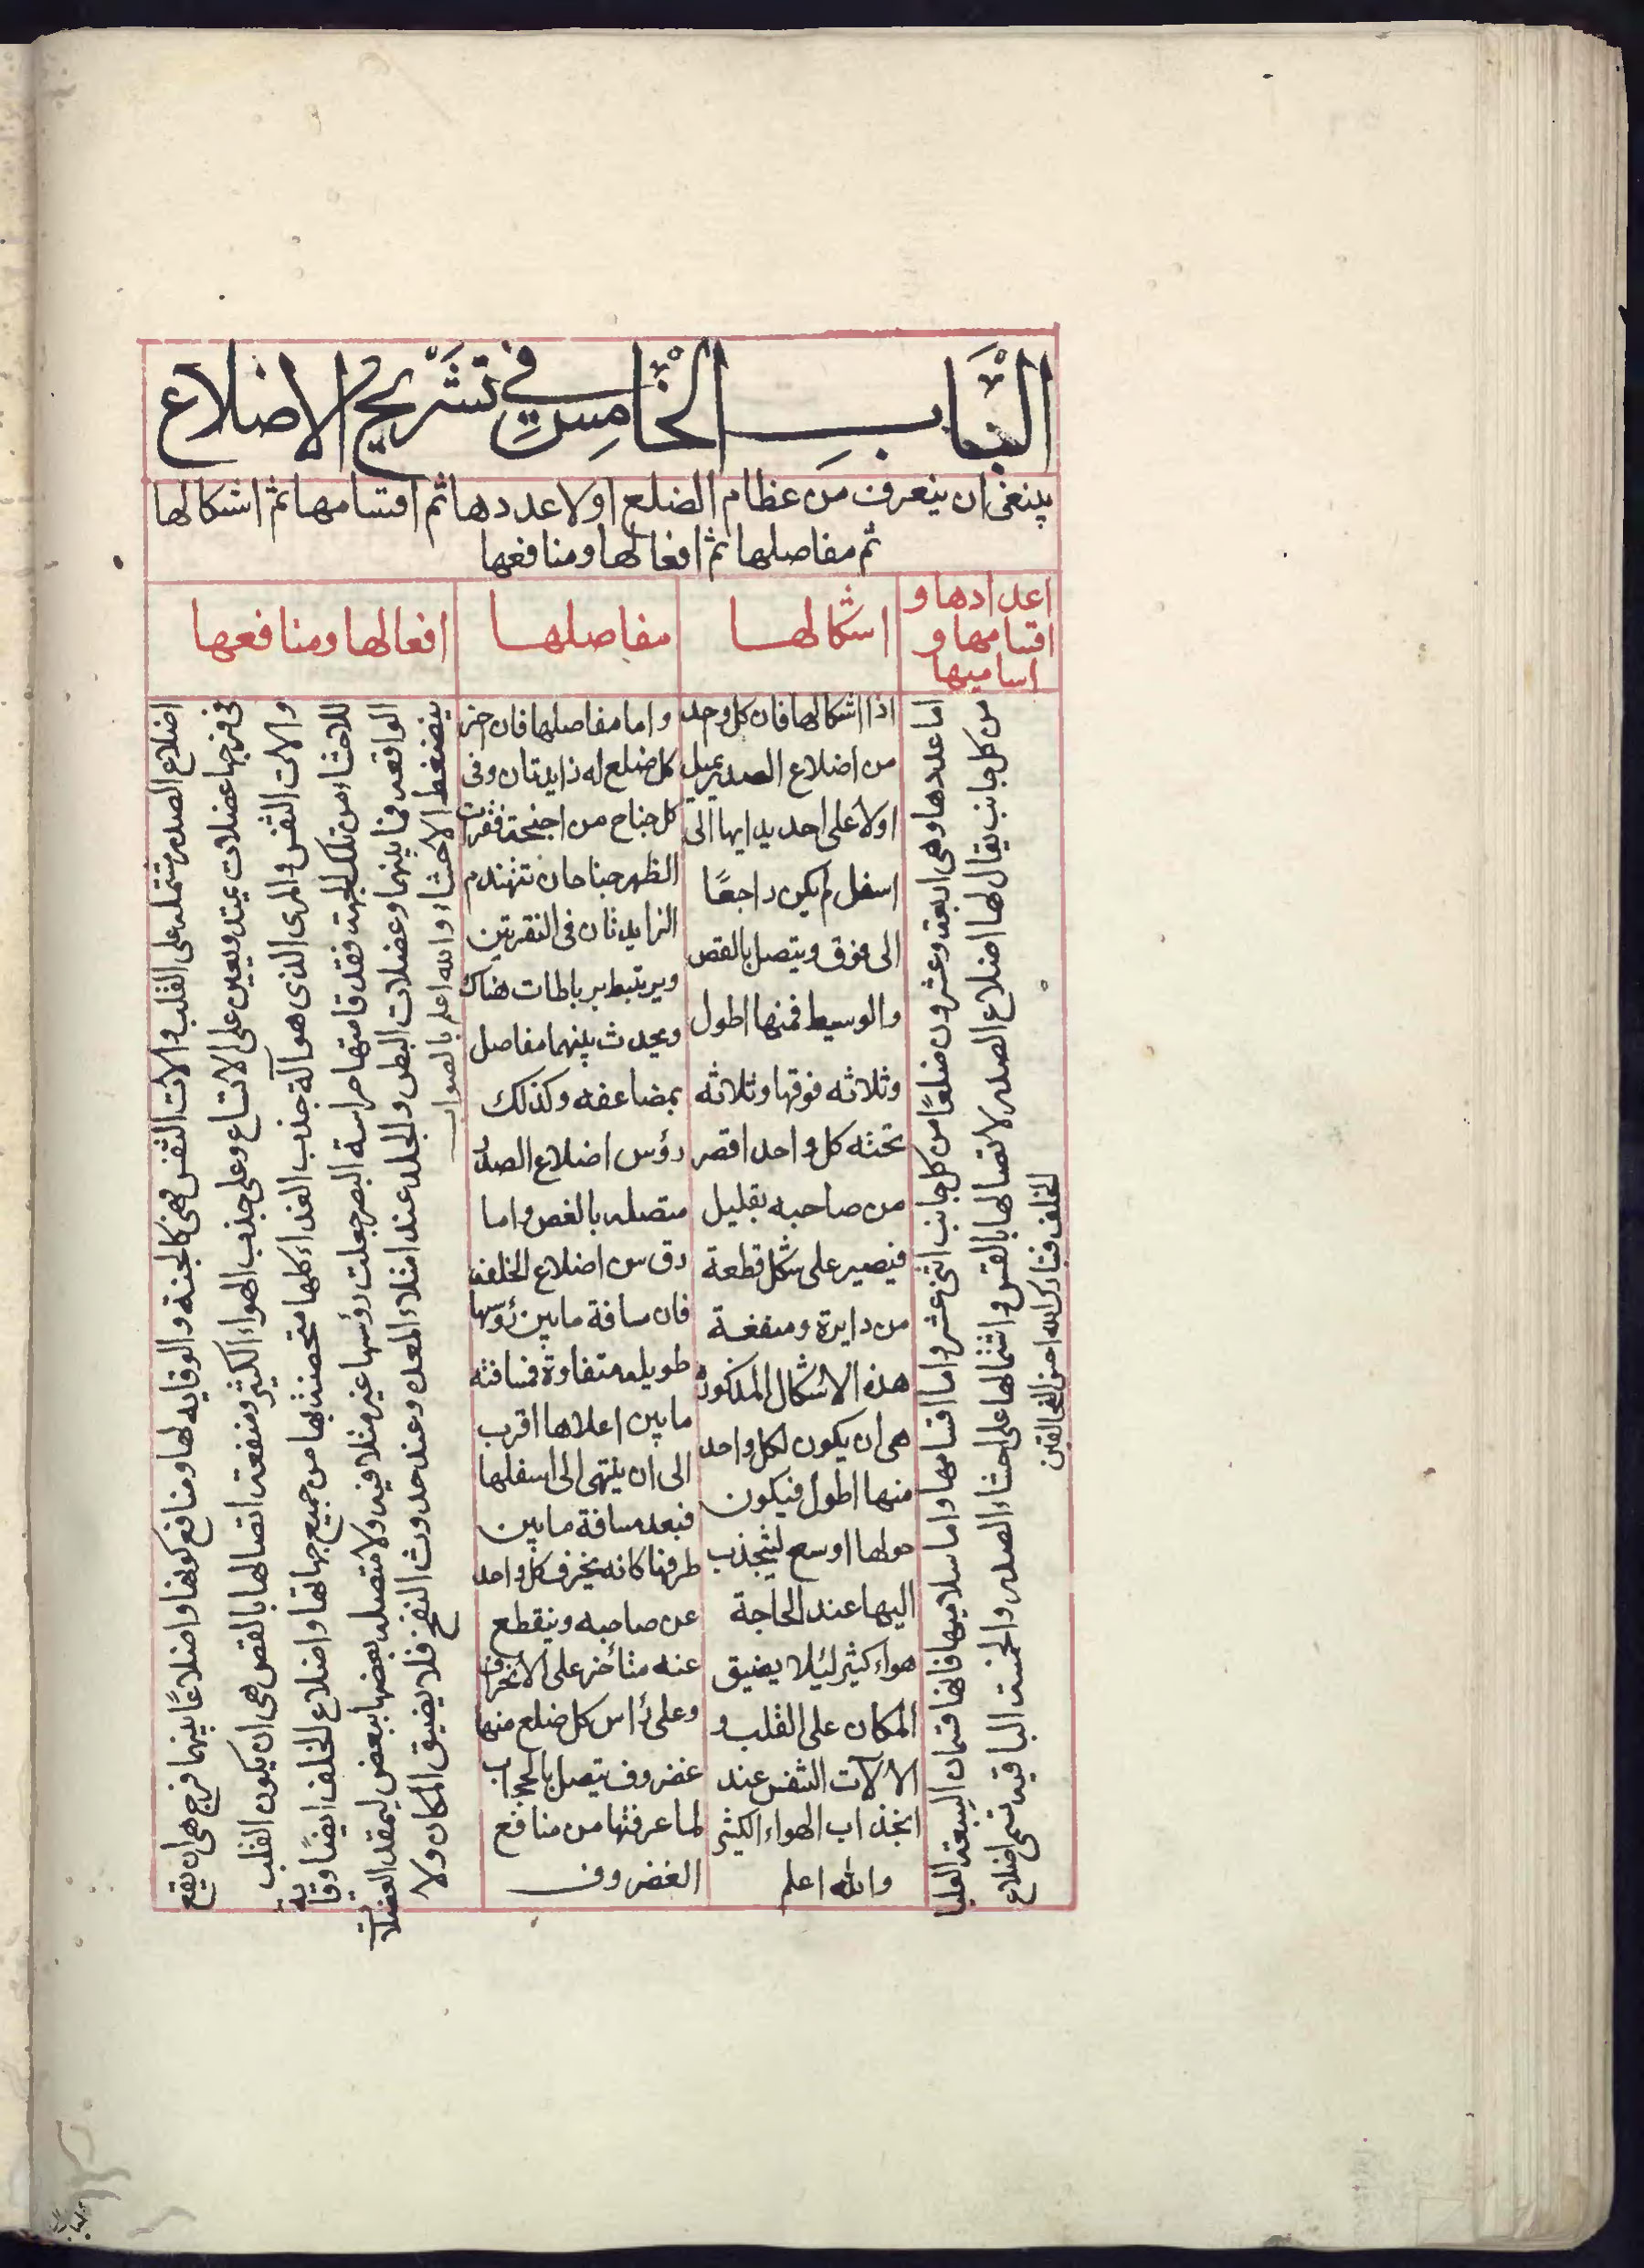 الباب الخامس في تشريح الاضلاع
ينبغى ان يتعرف من عظام الضلع اولا عددها ثم اقسامها ثم اشكالها
ثم مفاصلها ثم افعالها ومنافعها
اعدادها و
اقسامها و
اساميها
اشكالها
مفاصلها
افعالها ومنافعها
اما عددها وهى اربعة وعشرون ضلعًا من كل جانب اثنى عشر واما اقسامها واما سلاميها فانها قسمان السبعة العليا
من كل جانب يقال لها اضلاع الصدر لاتصالها بالقس واشتمالها على احشاء الصدر والخمسة الباقية تسمى اضلاع
الخلف فتبارك الله احسن الخالقين
اذا اشكالها فان كل وحد
من اضلاع الصدر يميل
اولا على احديدابها الى
اسفل ثم يكون راجعًا
الى فوق ويتصل بالقص
والوسيط فمنها اطول
وثلاثه فوقها وثلاثه
تحته كل واحد اقصر
من صاحبه بقليل
فيصير على شكل قطعة
من دايرة ومنفعة
هذه الاشكال المذكورة
هى ان يكون لكل واحد
منها اطول فيكون
حولها اوسع لينجذب
اليها عند الحاجة
هواء كثير لئلا يضيق
المكان على القلب و
الالات التنفس عند
انجذاب الهواء الكثير
والله اعلم
واما مفاصلها فان حرز
كل ضلع له زايدتان وفى
كل جناح من اجنحة فقرات
الظهر جناحان تنهندم
الزايدتان فى النقرتين
ويرتبط برباطات هناك
ويحدث بينهما مفاصل
بمضاعفه وكذلك
رؤس اضلاع الصدر
متصله بالغص واما
رؤس اضلاع الخلف
فان مسافة مابين رؤسها
طويله متفاوتة فمسافته
مابين اعلاها اقرب
الى ان ينتهى الى اسفلها
فبعد مسافة مابين
طرفها كانه يحرف كل واحد
عن صاحبه وينقطع
عنه متأخر على الانحراف
وعلى رأس كل ضلع منها
غضروف يتصل بالحجاب
لما عرفتها من منافع
الغضروف
اضلاع الصدر مشتمله على القلب والات التنفس فهى كالجنة والوقايه لها ومنافع كونها واضلاعًا بينهما فرج هى ان يقع
فى فرجها عضلات يمتد ويعين على الاتساع وعلى جذب الهواء الكثير ومنفعة اتصالها بالقص هى ان يكون القلب
والات التنفس والمرى الذى هو آلة جذب الغداء كلها متحصنة بها من جميع جهاتها واضلاع الخلف ايضًا وقاية
للاحشاء من تلك الجهة فقد قامتها حراسة البصر جعلت رؤسها غير متلاقيه ولا متصله بعضها ببعض ليمقد العضلات
الواقعه فما بينهما وعضلات البطن والجلد عند امتلاء المعده وعند حدوث النفخ فلا يضيق المكان ولا
ينضغط الاحشاء والله اعلم بالصواب